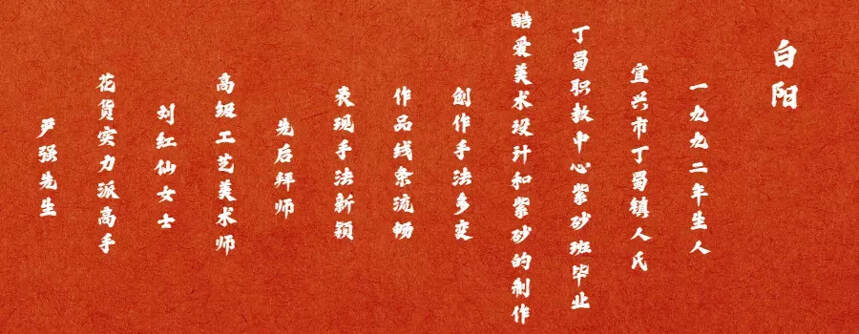 白阳
一九九二年生人
宜兴市丁蜀镇人氏
丁蜀职教中心紫砂班毕业
酷爱美术设计和紫砂的制作
创作手法多变
作品线条流畅
表现手法新颖
先后拜师
高级工艺美术师
刘红仙女士
花货实力派高手
尹强先生